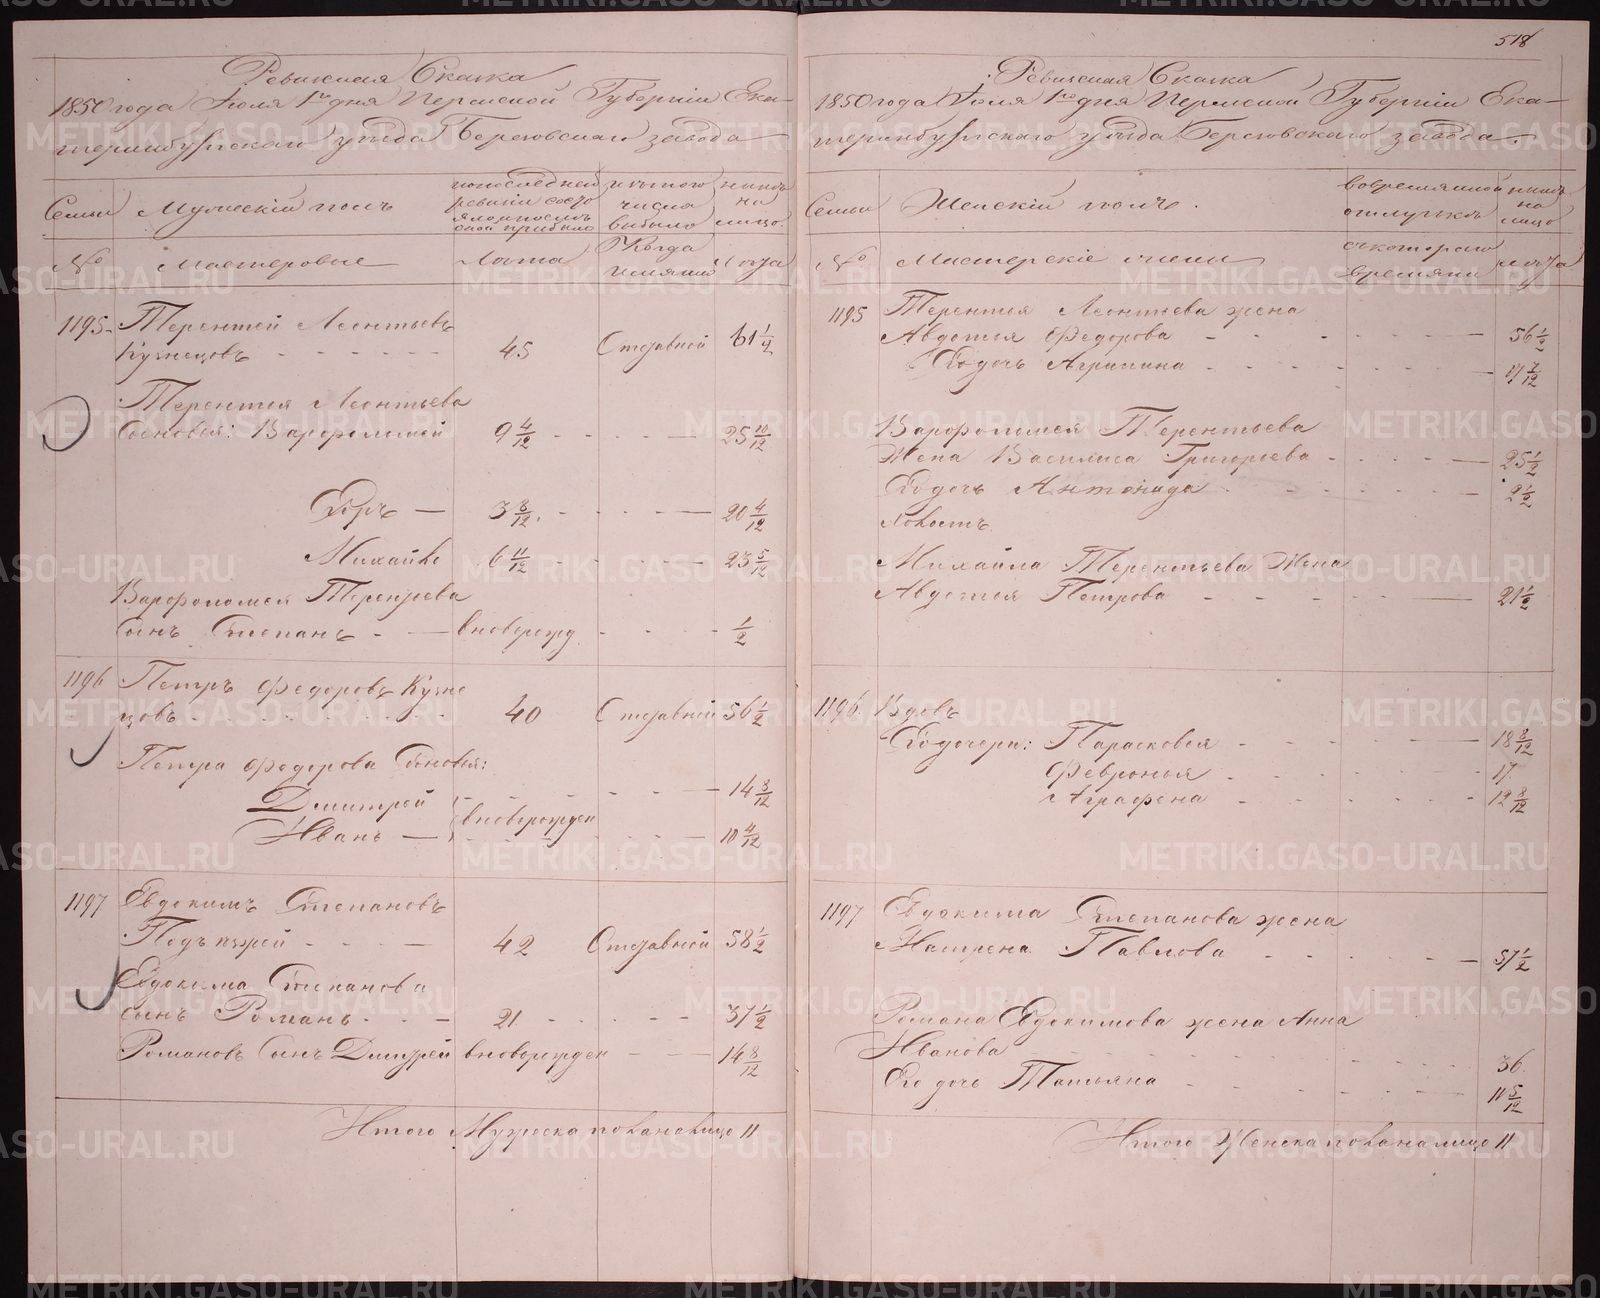 518
Ревизская Сказка
1850 года Іюля 1го дня Пермской Губерніи Ека-
теринбургскаго уѣзда Березовскаго завода
Семьи
Мужескій полъ
по последней ревизіи состояло и после оной прибыло
изъ того числа выбыло
ныне на лицо
№
Мастеровые
Лѣта
Когда именно
Лѣта
1195 Терентей Леонтьевъ
Кузнецовъ - - - 45 Отставной 61 1/2
Терентья Леонтьева
Сыновья: Варфоломей 9 4/12 - - - 25 10/12
Егоръ — 3 8/12 - - - 20 4/12
Михайло 6 11/12 - - - 23 5/12
Варфоломея Терентьева
Сынъ Степанъ - - вноворожд - - - 1/2
1196 Петръ Федоровъ Кузне
цовъ - - - 40 Отставной 56 1/2
Петра Федорова Сыновья:
Дмитрей - - - 14 8/12
вноворожден
Иванъ — - - - 10 4/12
1197 Евдокимъ Степановъ
- - - 42 Отставной 58 1/2
Евдокима Степанова
Сынъ Романъ - - - 21 - - - 37 1/2
Романовъ Сынъ Дмитрей вноворожден - - - 14 8/12
Итого Мужеска пола на лицо 11
Ревизская Сказка
1850 года Іюля 1го дня Пермской Губерніи Ека-
теринбургскаго уѣзда Березовскаго завода.
Семьи
Женскій полъ.
во временной отлучкѣ
ныне на лицо
№
Мастерскіе жены
съ котораго времяни
лѣта
1195 Терентья Леонтьева жена
Авдотья Федорова - - - 56 1/2
Ево дочь Агрипина - - - 17 7/12
Варфоломея Терентьева
Жена Василиса Григорьева - - - 25 1/2
Ево дочь Антонида - - - 2 1/2
Михайла Терентьева Жена
Авдотья Петрова - - - 21 1/2
1196 Вдовъ
Ево дочери: Парасковья - - - 18 8/12
Февронья - - - 17
Аграфена - - - 12 8/12
1197 Евдокима Степанова жена
Матрена Павлова - - - 57 1/2
Романа Евдокимова жена Анна
Иванова - - - 36
Ево дочь Татьяна - - - 11 5/12
Итого Женска пола на лицо 11
METRIKI.GASO-URAL.RU